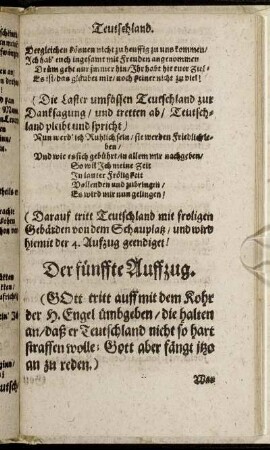 Teutschland.
Dergleichen können nicht zu heuffig zu uns kommen/
Ich hab' euch ingesamt mit Freuden angenommen
Drüm geht nur immer hin/ Ihr habt hie euer Ziel/
Es ist/ das gläubet mir/ noch keiner nicht zu viel!
(Die Laster umfassen Teutschland zur
Danksagung/ und tretten ab/ Teutsch-
land pleibt und spricht)
Nun werd' ich Ruhlich sein/ sie werden Friedlich le-
ben/
Und wie es sich gebühret/ in allem mir nachgeben/
So wil Ich meine Zeit
In lauter Fröligkeit
Vollenden und zubringen/
Es wird mir nun gelingen!
(Darauf tritt Teutschland mit froligen
Gebärden von dem Schauplatz/ und wird
hiemit der 4. Aufzug geendiget!
Der fünffte Auffzug.
(GOtt tritt auff mit dem Kohr
der H. Engel ümbgeben/ die halten
an/ daß er Teutschland nicht so hart
straffen wolle: Gott aber fängt itzo
an zu reden.)
Was